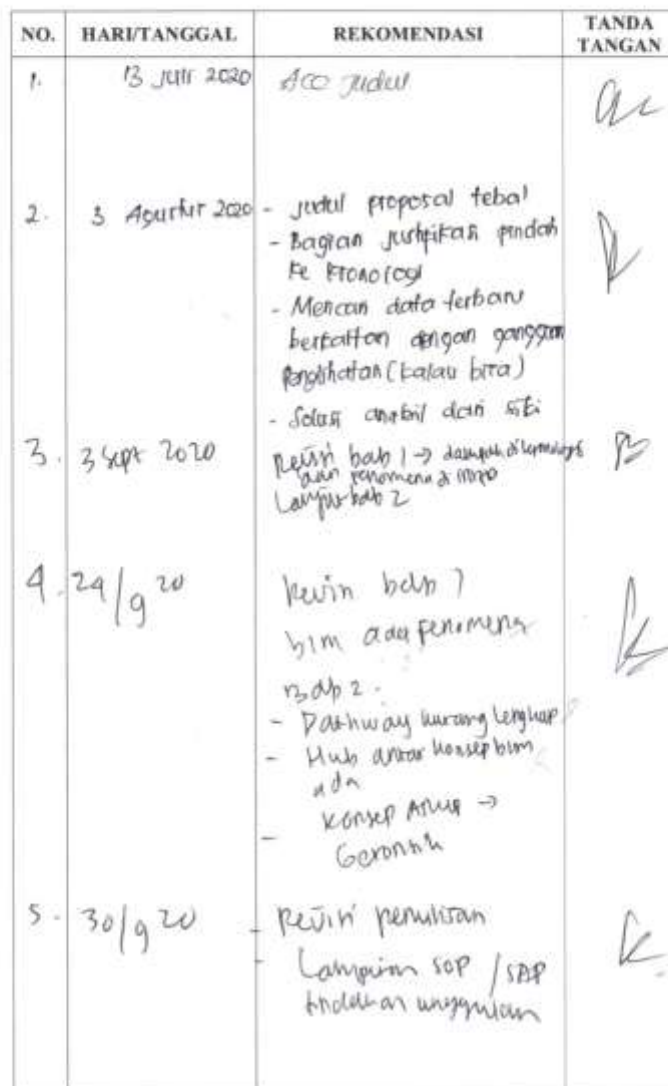 NO. HARI/TANGGAL REKOMENDASI TANDA TANGAN
1. 13 Juli 2020 Acc Judul
2. 3 Agustus 2020 - Judul proposal tebal
- Bagian justifikasi pindah
ke kronologi
- Mencari data terbaru
berkaitan dengan gangguan
Penglihatan (kalau bisa)
- Solusi ambil dari siki
3. 3 Sept 2020 Revisi bab 1 →
dan fenomena di
Lanjut bab 2
4. 24/9 20 Revisi bab 1
blm ada fenomena
Bab 2.
- Pathway kurang lengkap
- Hub antar konsep blm
ada
- Konsep Askep →
Gerontik
5. 30/9 20 - Revisi penulisan
- Lampiran SOP / SAP
tindakan unggulan